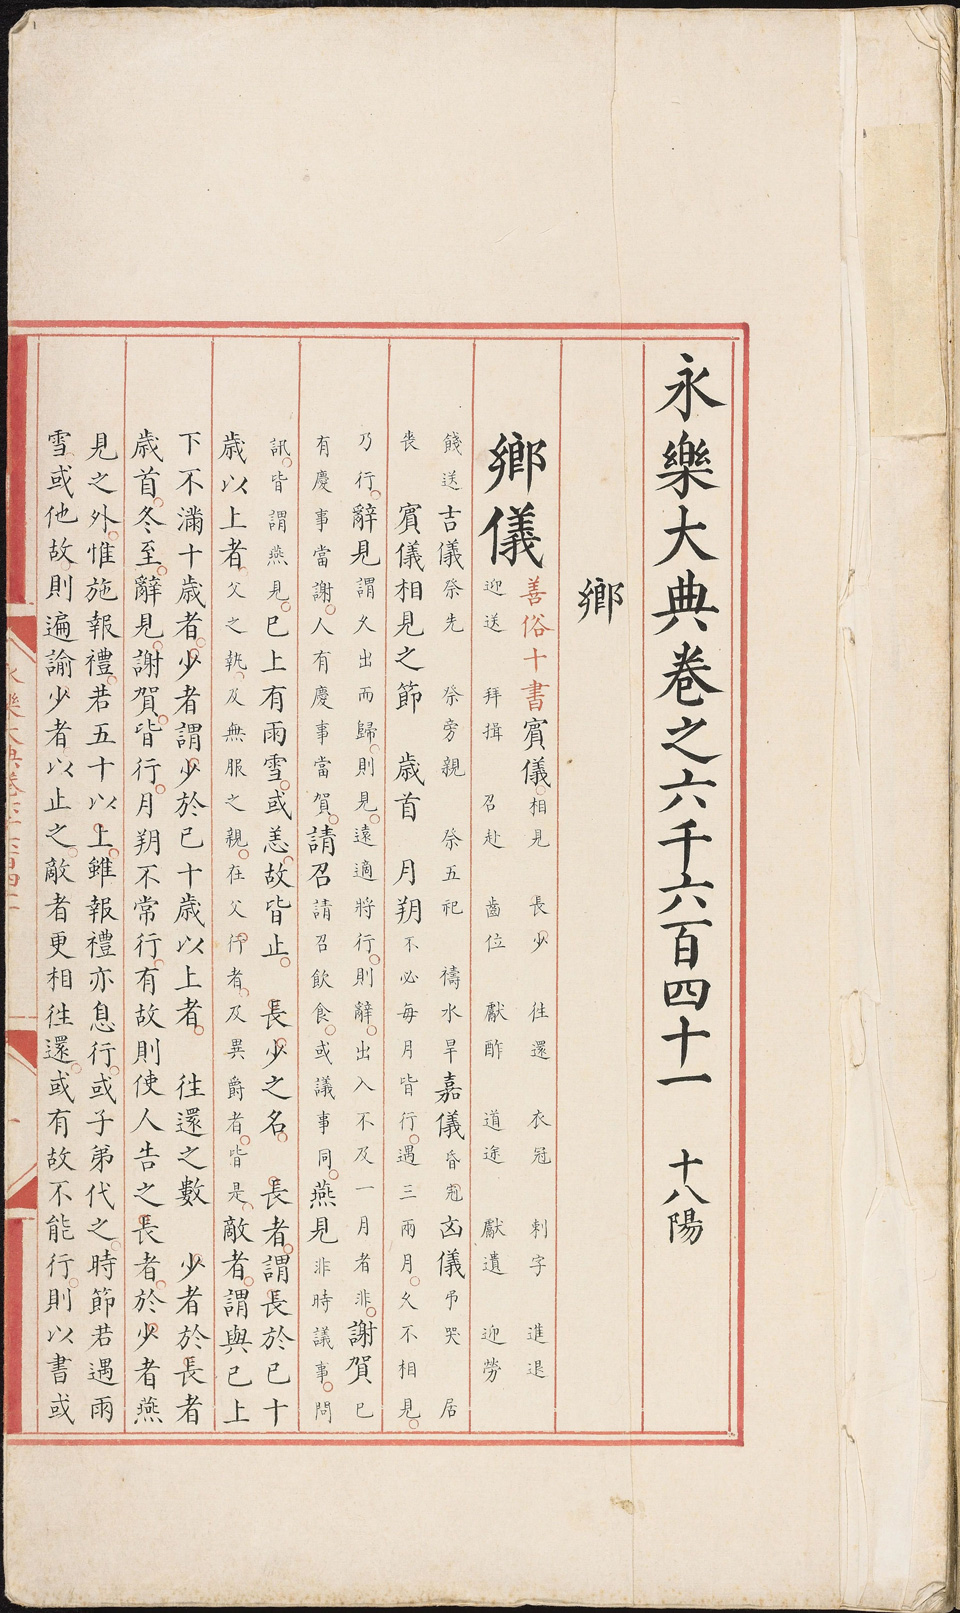 永樂大典卷之六千六百四十一　十八陽
鄉
鄉儀
善俗十書賔儀相見　長少　徃還　衣冠　剌字　進退
迎送　拜揖　召赴　齒位　獻酢　道途　獻遺　迎勞
餞送吉儀祭先　祭旁親　祭五祀　禱水旱嘉儀昏冠凶儀弔哭　居
喪　賔儀相見之節　歲首　月朔不必毎月皆行遇三兩月乆不相見
乃行辭見謂乆出而歸則見遠適將行則辭出入不及一月者非謝賀已
有慶事當謝人有慶事當賀請召請召飲食或議事同燕見非時議事問
訊皆謂燕見已上有雨雪或恙故皆止　長少之名　長者謂長於已十
歲以上者父之執及無服之親在父行者及異爵者皆是敵者謂與已上
下不滿十歲者少者謂少於已十歲以上者　徃還之數　少者於長者
歲首冬至辭見謝賀皆行月朔不常行有故則使人告之長者於少者燕
見之外惟施報禮若五十以上雖報禮亦息行或子弟代之時節若遇雨
雪或他故則遍諭少者以止之敵者更相徃還或有故不能行則以書或